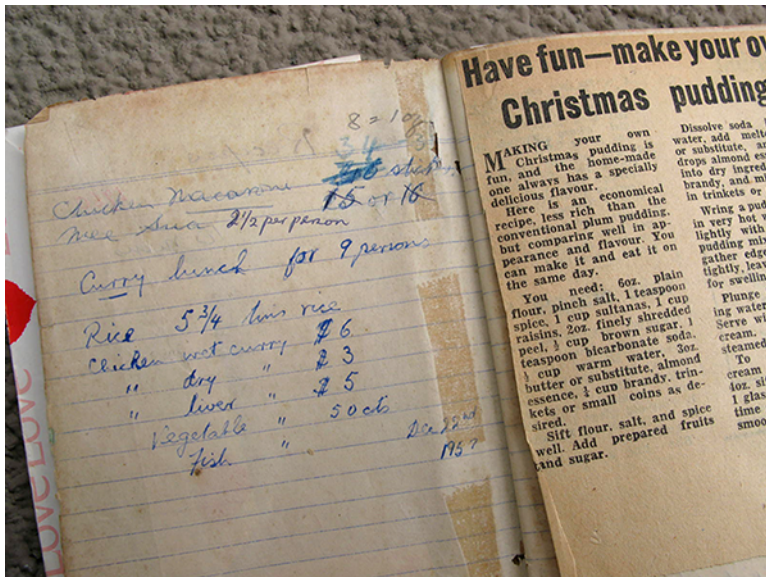 8 = 10
34
15 or 16
Chicken Macaroni
Mee Siia 2 1/2 per person
Curry lunch for 9 persons
Rice 5 3/4 tins rice
Chicken wet curry $6
" dry " $3
" liver " $5
Vegetable " 50 cts
Fish "
Dec 22nd
195?
LOVE LOVE
Have fun—make your ov
Christmas pudding
MAKING your own
Christmas pudding is
fun, and the home-made
one always has a specially
delicious flavour.
Here is an economical
recipe, less rich than the
conventional plum pudding,
but comparing well in ap-
pearance and flavour. You
can make it and eat it on
the same day.
You need: 6oz. plain
flour, pinch salt, 1 teaspoon
spice, 1 cup sultanas, 1 cup
raisins, 2oz. finely shredded
peel, ½ cup brown sugar, 1
teaspoon bicarbonate soda,
½ cup warm water, 3oz.
butter or substitute, almond
essence, ¼ cup brandy, trin-
kets or small coins as de-
sired.
Sift flour, salt, and spice
well. Add prepared fruits
and sugar.
Dissolve soda
water, add melte
or substitute, an
drops almond ess
into dry ingred
brandy, and mi
in trinkets or
Wring a pud
in very hot w
lightly with
pudding mix
gather edge
tightly, leav
for swellin
Plunge
ing water
Serve wi
cream.
steamed
To
cream
4oz. si
1 glas
time
smoo